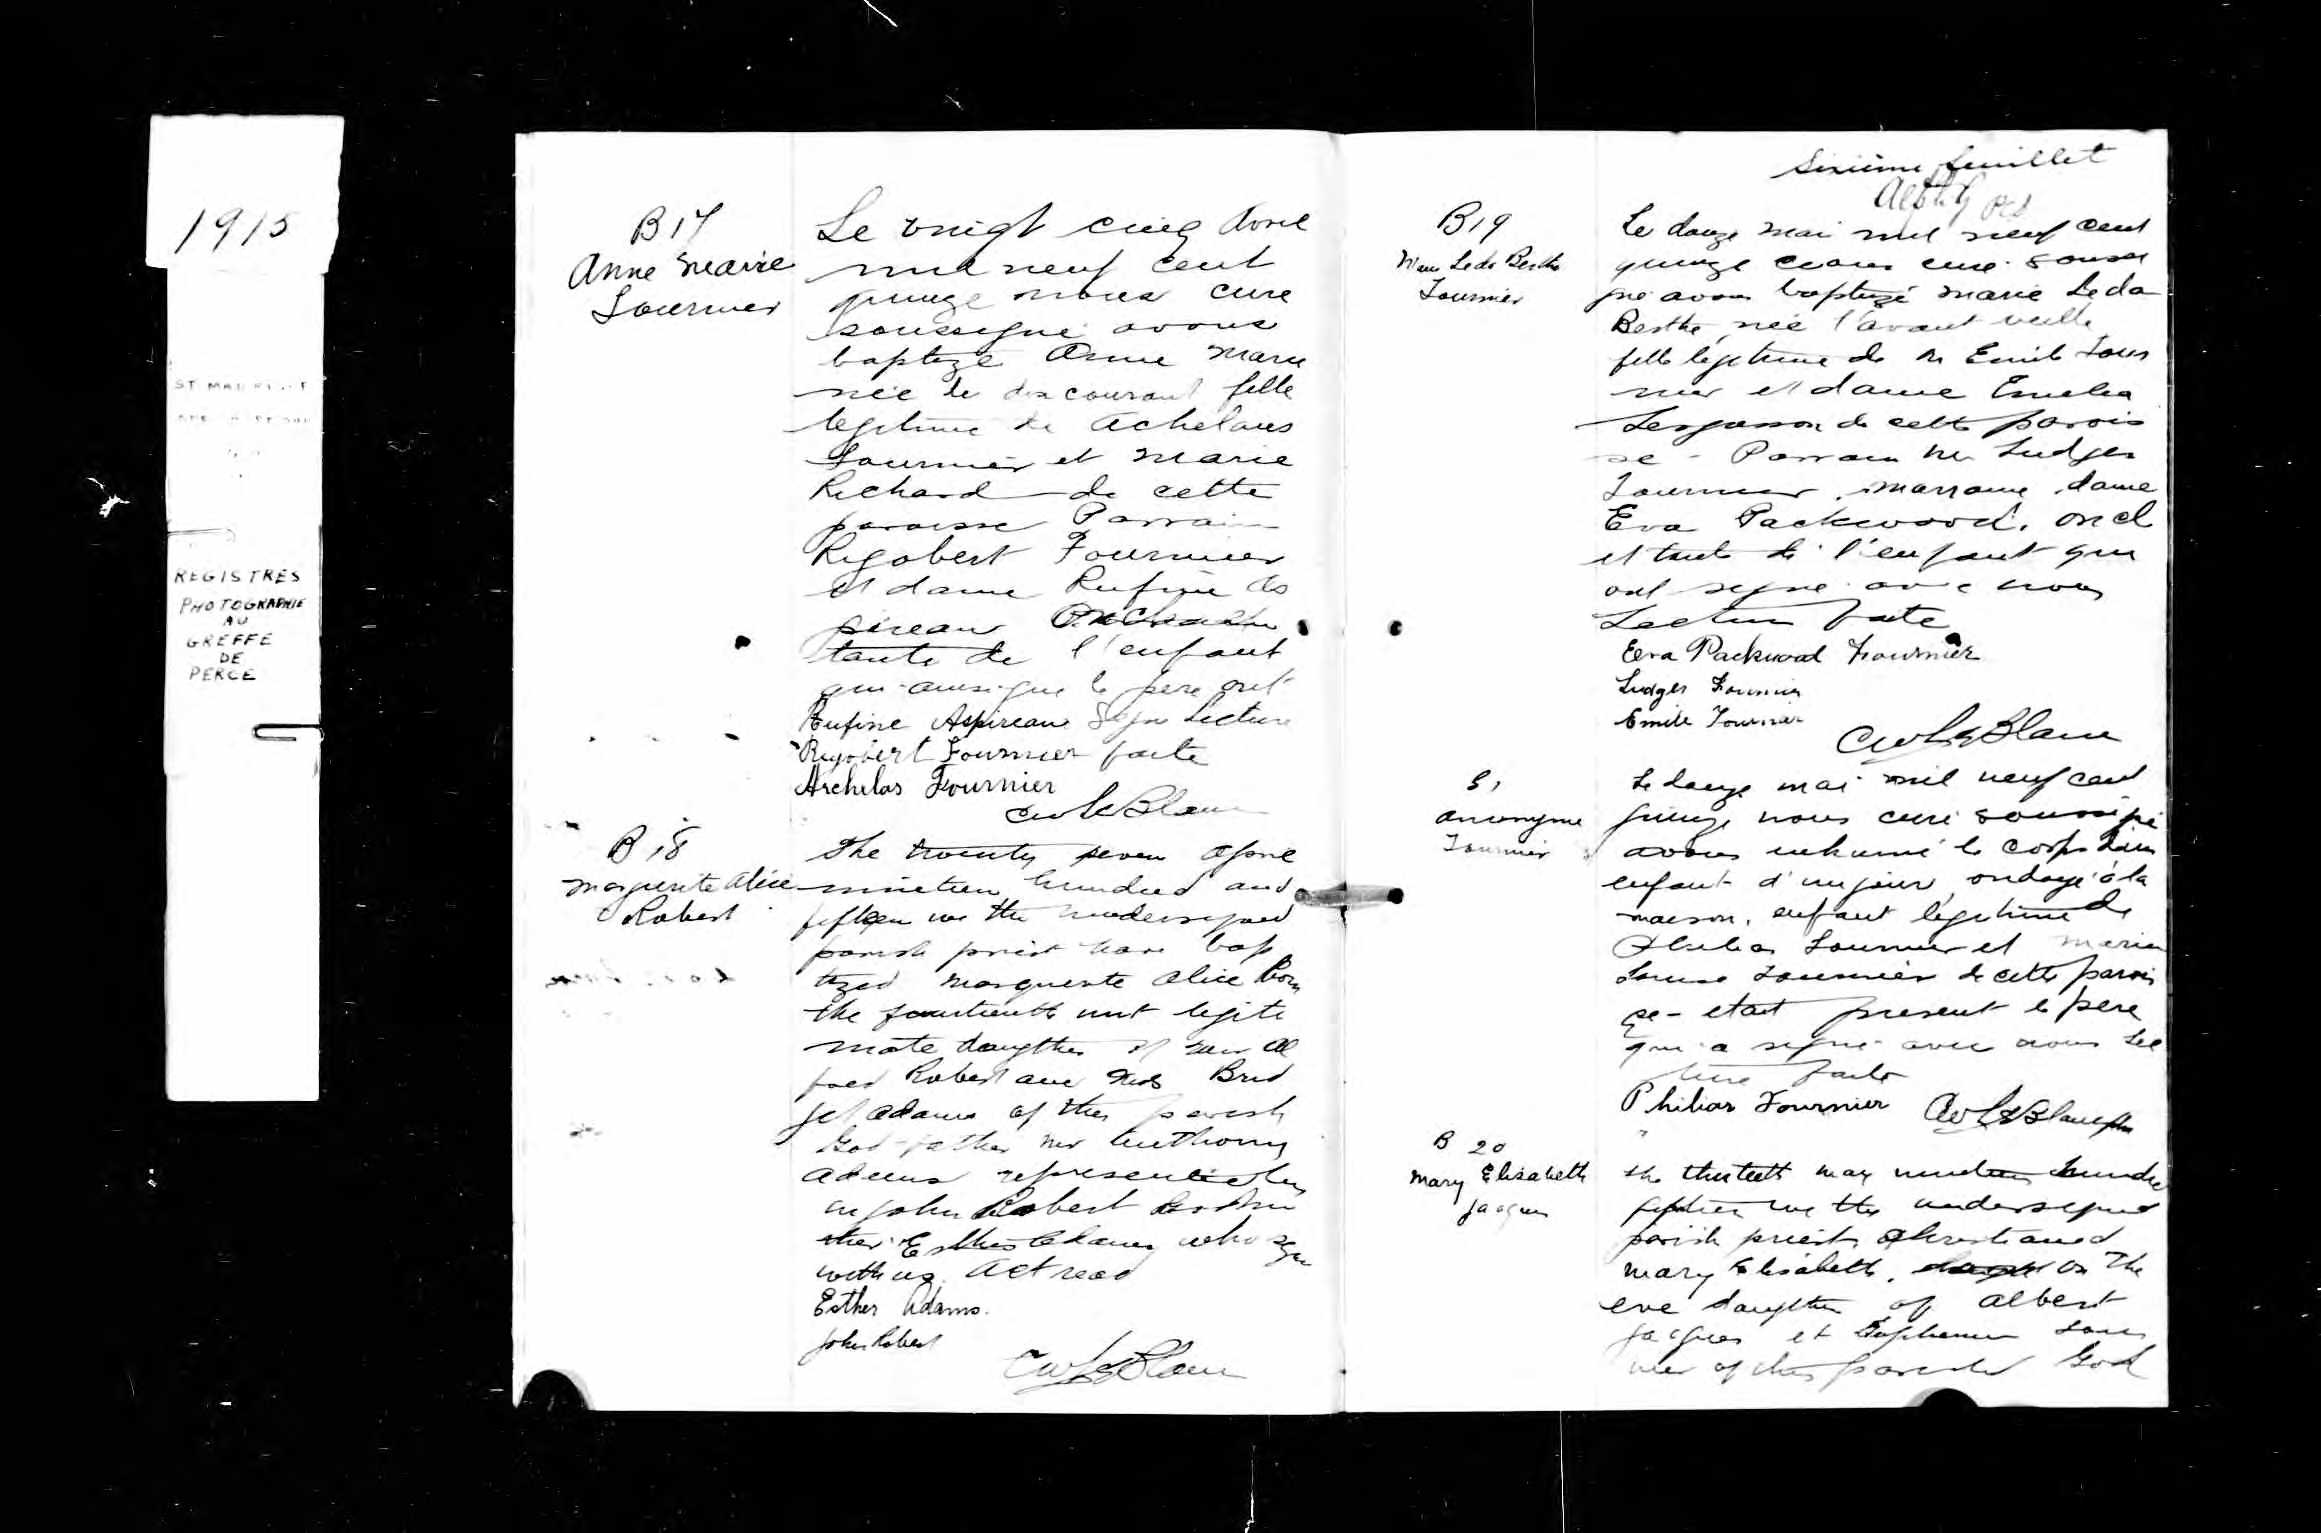 1915
REGISTRES
PHOTOGRAPHIE
AU
GREFFE
DE
PERCE
B 17
Anne Marie
Fournier
Le vingt cinq Avril
mil neuf cent
quinze nous curé
soussigné avons
baptizé Anne Marie
née le dix courant fille
legitime de Achelaus
Fournier et Marie
Richard de cette
paroisse Parrain
Rigobert Fournier
et dame Rufine As
pireau
tante de l'enfant
qui ainsi que le père ont
Rufine Aspireau Signe Lecture
Rigobert Fournier faite
Archelas Fournier
CWLeBlanc
B 18
Marguerite Alice
Robert
The twenty seven Apric
ninetien hundred and
fifteen we the undersigned
parish priest have bap
tized Marguerite Alice born
the legiti
mate daughter of Mr Al
fred Robert and Mrs Brid
get Adams of this parish
God-father Mr Anthony
Adams represented by
Mr John Robert God mo
ther Esther Adams who sign
with us. Act read
Esther Adams.
John Robert
CWLeBlanc
Sixième feuillet
B19
Marie Leda Berthe
Fournier
Le douze mai mil neuf cent
quinze nous curé soussi
gné avons baptizé Marie Leda
Berthe, née l'avant veille
fille legitime de Mr Emile Four
nier et dame Emelia
Ferguson de cette parois
se - Parrain Mr Ludger
Fournier, marraine dame
Eva Packwood, oncl
et tante de l'enfant qui
ont signé avec nous
Lecture faite
Eva Packwood Fournier
Ludger Fournier
Emile Fournier
CWLeBlanc
S1
anonyme
Fournier
Le douze mai mil neuf cent
quinze nous curé soussigné
avons inhumé le corps d'un
enfant d'un jour ondoyé à la
maison, enfant légitime de
Philias Fournier et Marie
Louise Fournier de cette parois
se - etait present le père
qui a signé avec nous Lec
ture faite
Philias Fournier CWLeBlanc ptre
B 20
Mary Elisabeth
Jacques
the may hundre
we the undersigned
parish priest christianed
Mary Elisabeth, on the
eve daughter of Albert
Jacques et Euphemie Four
nier of this parish God